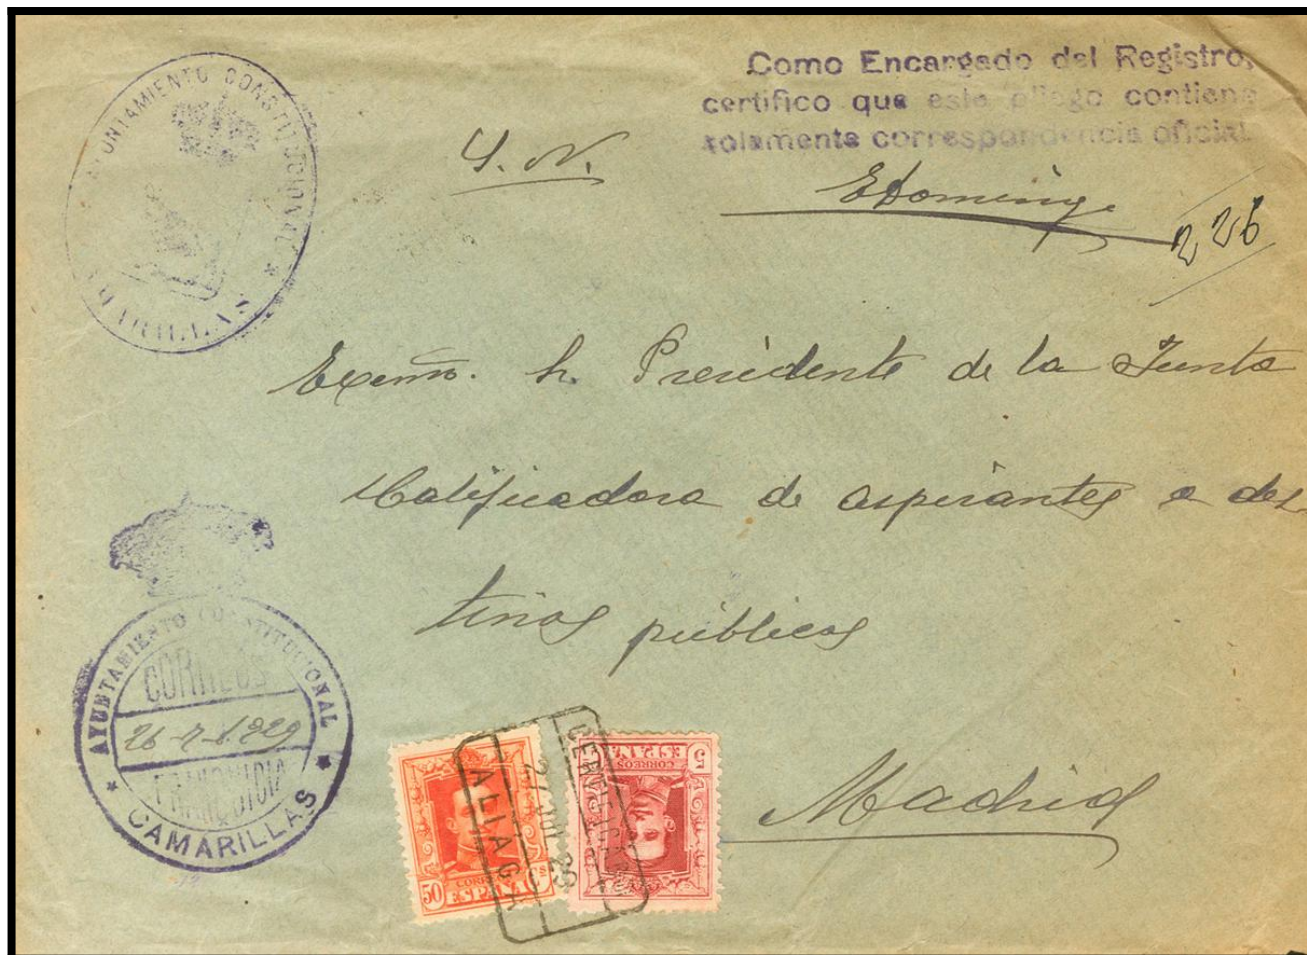 AYUNTAMIENTO CONSTITUCIONAL
CAMARILLAS
Como Encargado del Registro,
certifico que este pliego contiene
solamente correspondencia oficial.
S. N.
EDomingo
226
Excmo. Sr. Presidente de la Junta
Calificadora de aspirantes a des
tinos públicos
AYUNTAMIENTO CONSTITUCIONAL
CORREOS
26-7-1929
FRANQUICIA
CAMARILLAS
50 CTS
CORREOS
ESPAÑA
CERTIFICADO
ALIAGA
5
CORREOS
ESPAÑA
Madrid